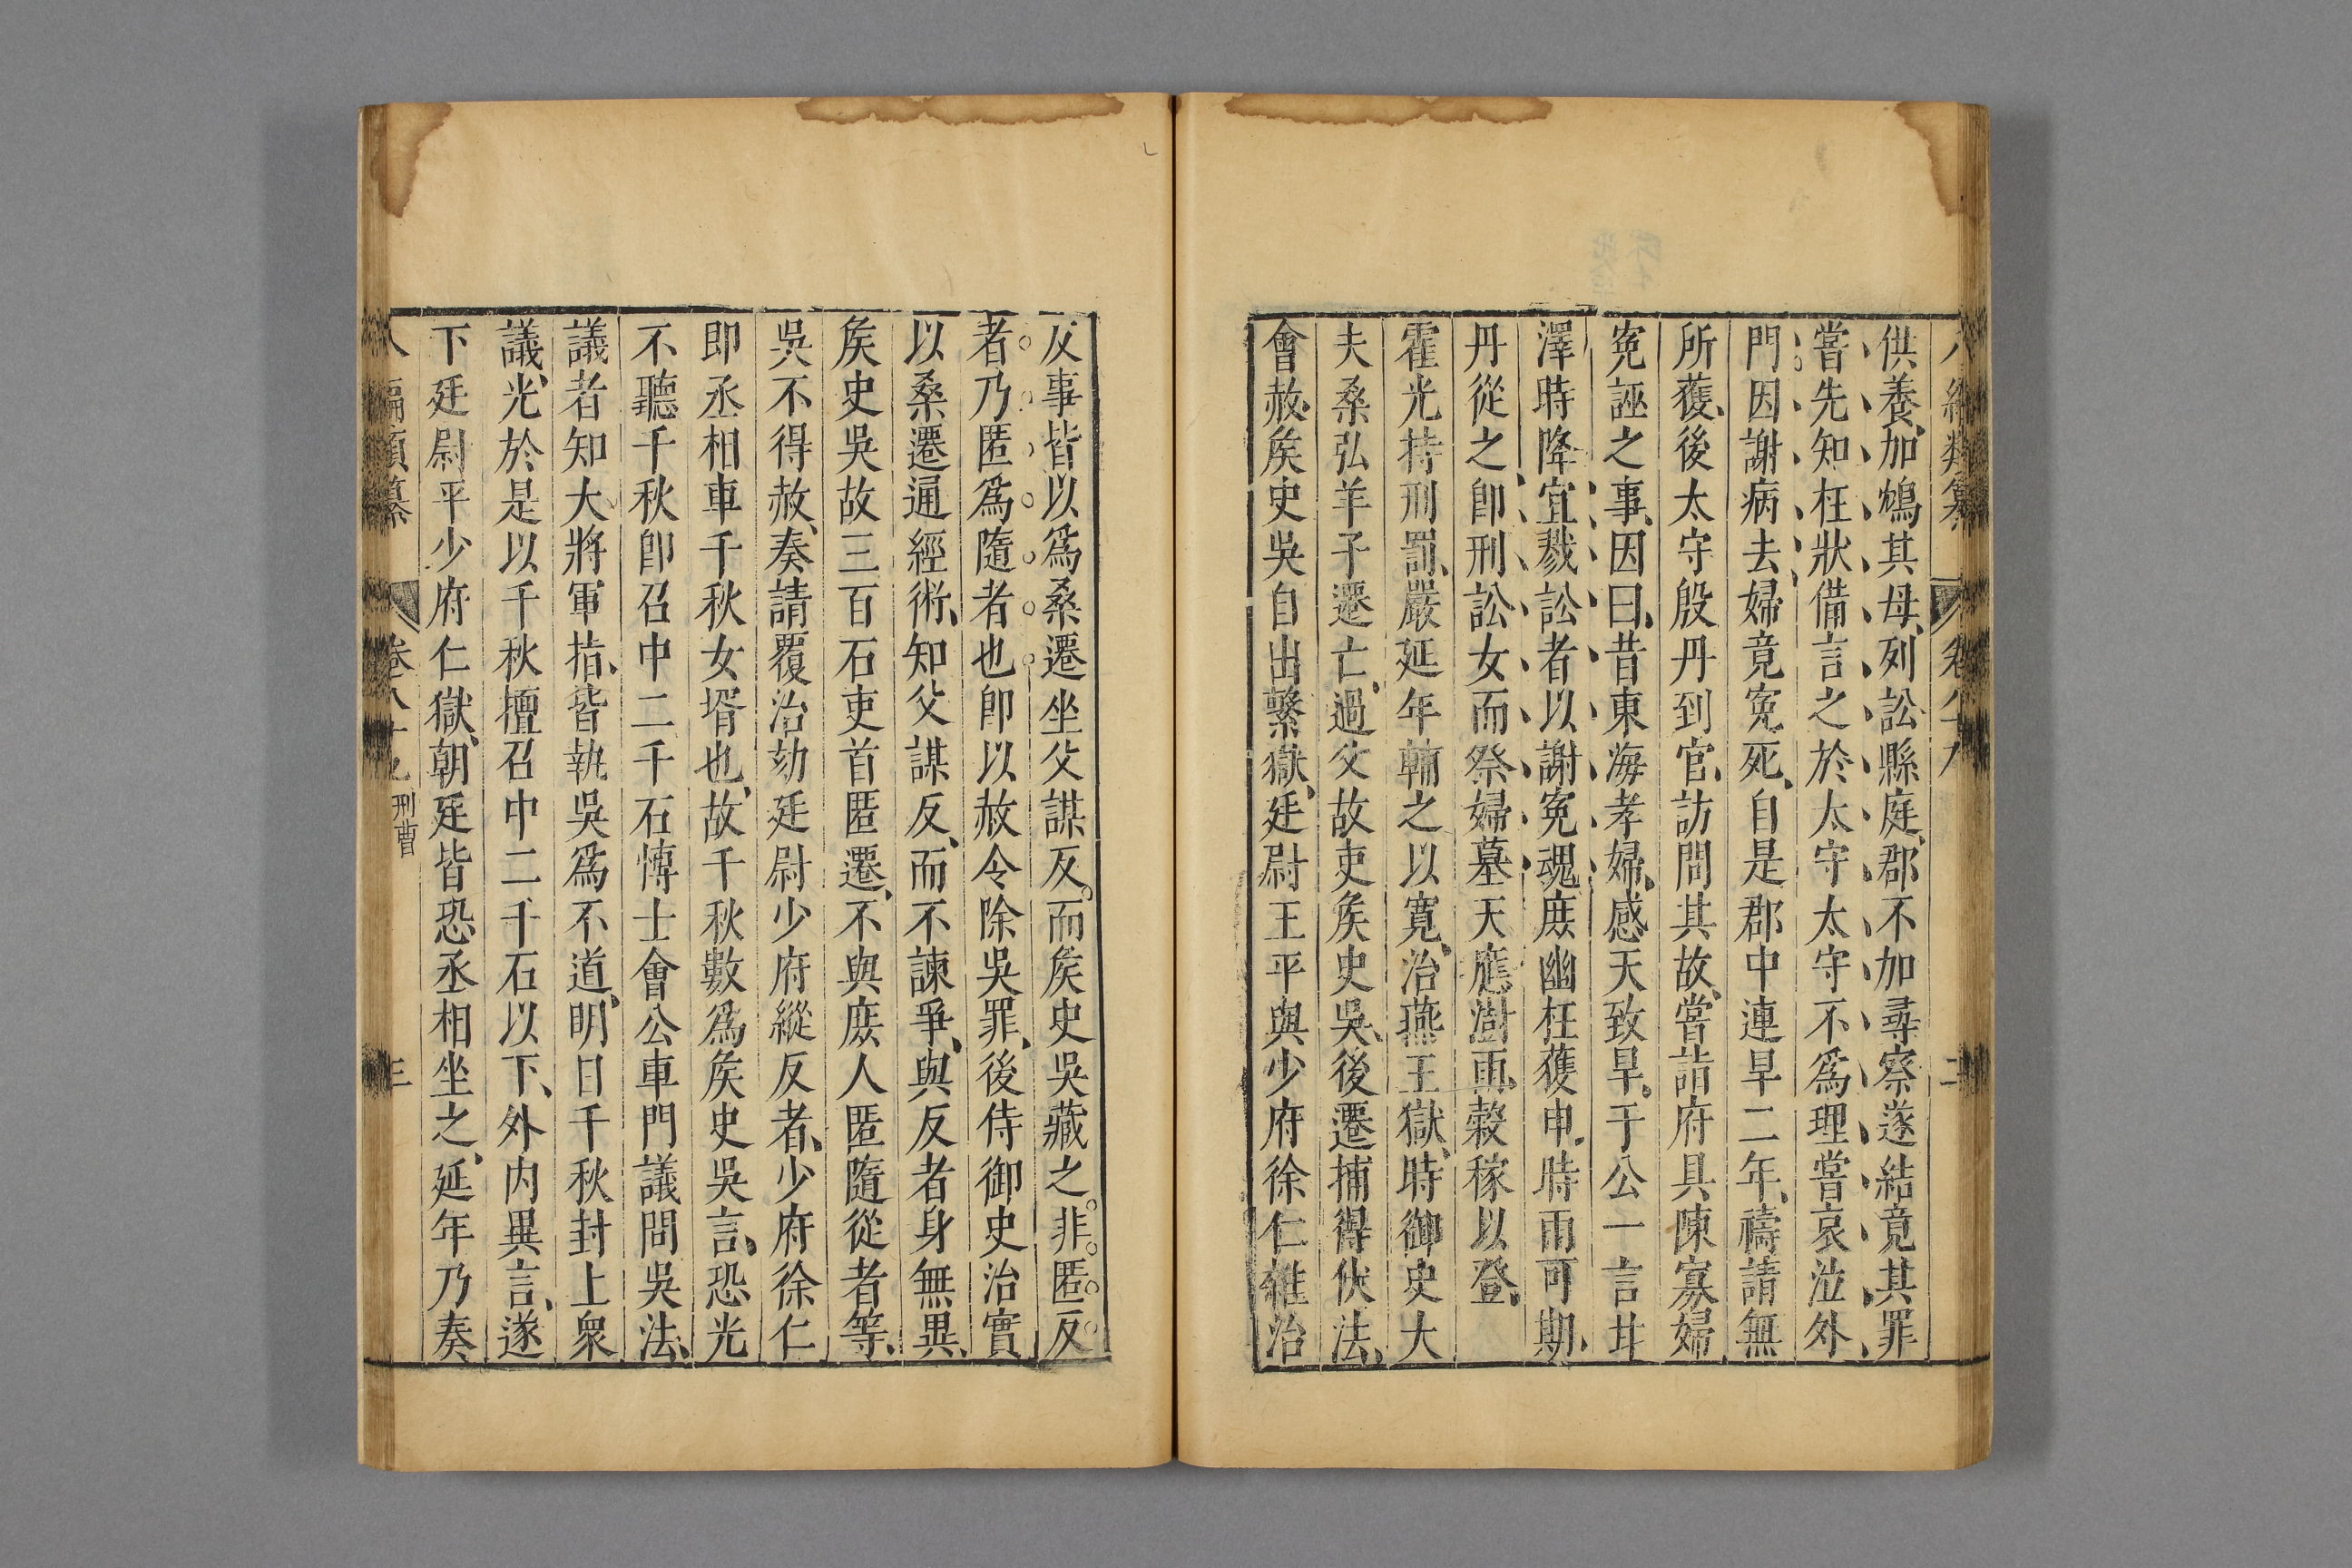 供養加鴆其母列訟縣庭郡不加尋察遂結竟其罪
嘗先知枉狀備言之於太守太守不爲理嘗哀泣外
門因謝病去婦竟寃死自是郡中連旱二年禱請無
所獲後太守殷丹到官訪問其故嘗詣府具陳寡婦
寃誣之事因曰昔東海孝婦感天致旱于公一言甘
澤時降宜戮訟者以謝寃魂庶幽枉獲申時雨可期
丹從之卽刑訟女而祭婦墓天應澍雨穀稼以登
霍光持刑罰嚴延年輔之以寬治燕王獄時御史大
夫桑弘羊子遷亡過父故吏矦史吳後遷捕得伏法
會赦矦史吳自出繫獄廷尉王平與少府徐仁雜治
反事皆以爲桑遷坐父謀反而矦史吳藏之非匿反
者乃匿爲隨者也卽以赦令除吳罪後侍御史治實
以桑遷通經術知父謀反而不諫爭與反者身無異
矦史吳故三百石吏首匿遷不與庶人匿隨從者等
吳不得赦奏請覆治劾廷尉少府縱反者少府徐仁
即丞相車千秋女壻也故千秋數爲矦史吳言恐光
不聽千秋卽召中二千石博士會公車門議問吳法
議者知大將軍指皆執吳爲不道明日千秋封上衆
議光於是以千秋擅召中二千石以下外内異言遂
下廷尉平少府仁獄朝廷皆恐丞相坐之延年乃奏
八編類纂 卷八十九 刑曹 三